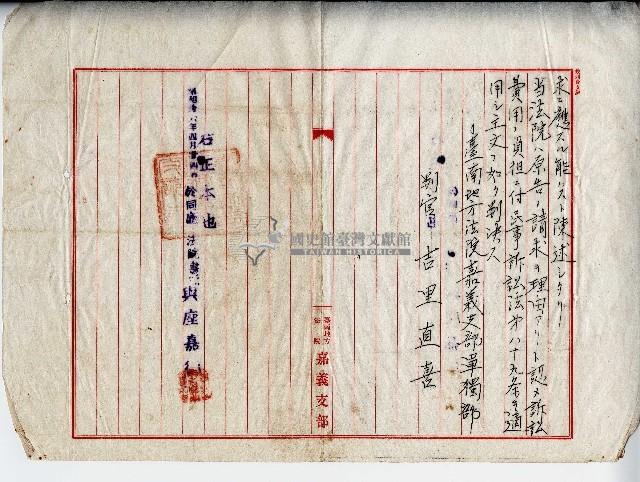 求ニ應スル能ハスト陳述シタリ
当法院ハ原告ノ請求ヲ理由アリト認メ訴訟
費用ノ負担ニ付民事訴訟法第八十九条ヲ適
用シ主文ノ如ク判決ス
臺南地方法院嘉義支部單獨部
判官 吉里直喜
臺南地方
法院
嘉義支部
右正本也
於同廳
國史館臺灣文獻館
TAIWAN HISTORICA